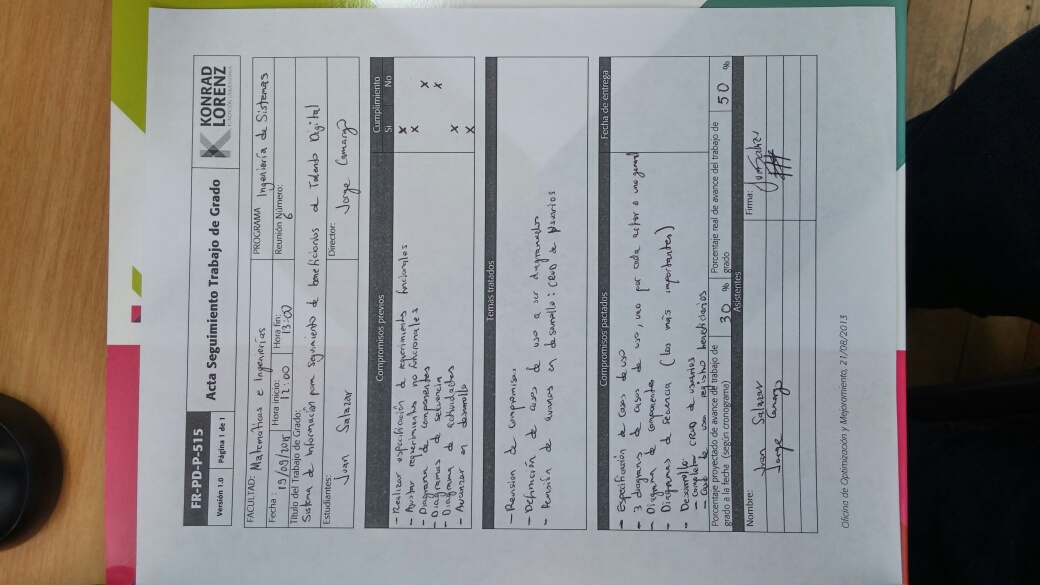 FR-PD-P-515
Versión 1.0 Página 1 de 1
Acta Seguimiento Trabajo de Grado
KONRAD
LORENZ
FUNDACIÓN UNIVERSITARIA
FACULTAD: Matematicas e Ingenierías
PROGRAMA Ingeniería de Sistemas
Fecha: 19/09/2015 Hora inicio: 12:00 Hora fin: 13:00 Reunión Número: 6
Título del Trabajo de Grado:
Sistema de Información para Seguimiento de beneficiarios de Talento Digital
Estudiantes: Juan Salazar
Director: Jorge Camargo
Compromisos previos Cumplimiento
Si No
- Realizar especificación de requerimiento funcionales X
- Ajustar requerimientos no funcionales X
- Diagrama de componentes X
- Diagramas de secuencia X
- Diagrama de actividades X
- Avanzar en desarrollo X
Temas tratados
- Revision de compromisos
- Definición de casos de uso a ser diagramados
- Revisión de avances en desarrollo: CRUD de Usuarios
Compromisos pactados Fecha de entrega
- Especificación de casos de uso
- 3 diagrams de casos de uso, uno por cada actor o uno general
- Diagrama de componentes
- Diagramas de secuencia (los más importantes)
- Desarrollo:
- Completar CRUD de usuarios
- Caso de uso registro beneficiarios
Porcentaje proyectado de avance de trabajo de grado a la fecha (según cronograma) 30 %
Porcentaje real de avance del trabajo de grado 50 %
Asistentes
Nombre: Firma:
Juan Salazar
Jorge Camargo
Oficina de Optimización y Mejoramiento, 21/08/2013